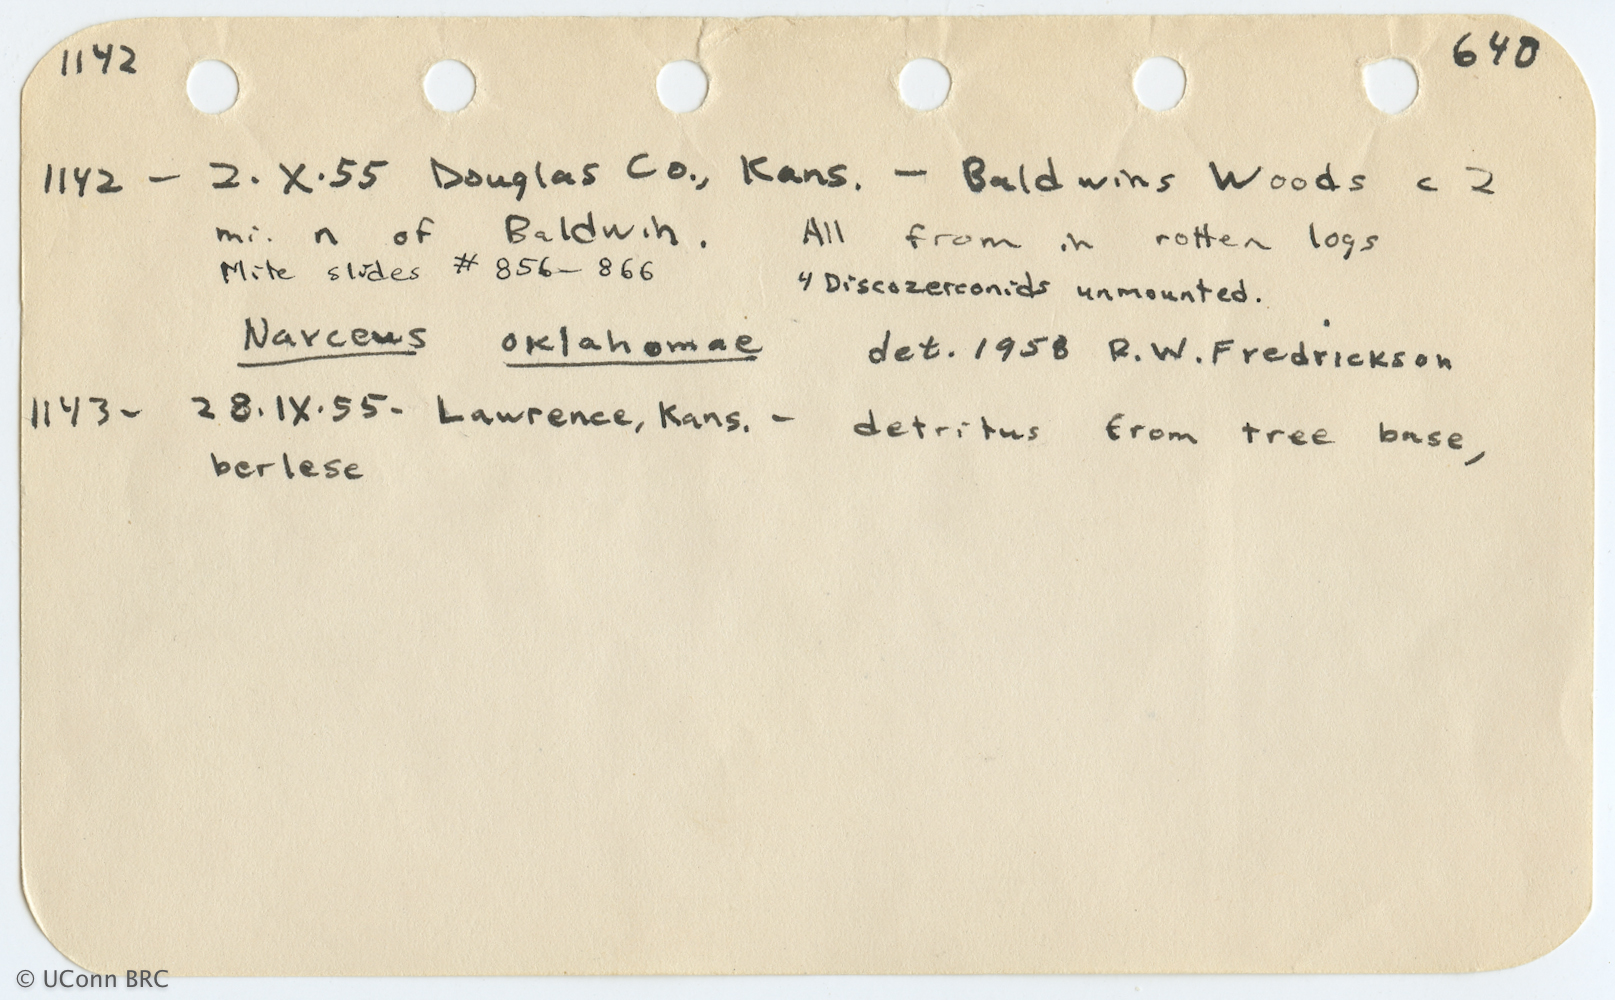 1142 640
1142 - 2.X.55 Douglas Co., Kans. - Baldwins Woods c 2
mi. n of Baldwin. All from in rotten logs
Mite slides # 856-866 4 Discozerconids unmounted.
Narceus oklahomae det. 1958 R.W. Fredrickson
1143- 28.IX.55- Lawrence, Kans. - detritus from tree base,
berlese
© UConn BRC